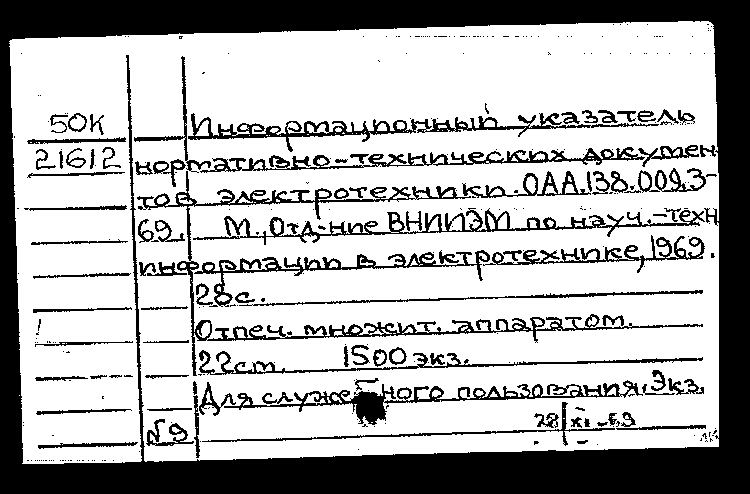 50К Информационный указатель
21612 нормативно-технических докумен-
тов электротехники. ОАА.138.009.3-
69. М., Отд-ние ВНИИЭМ по науч.-техн
информации в электротехнике, 1969.
28с.
Отпеч. множит. аппаратом.
22ст. 1500 экз.
Для служебного пользования. Экз.
№9 28/XI-69